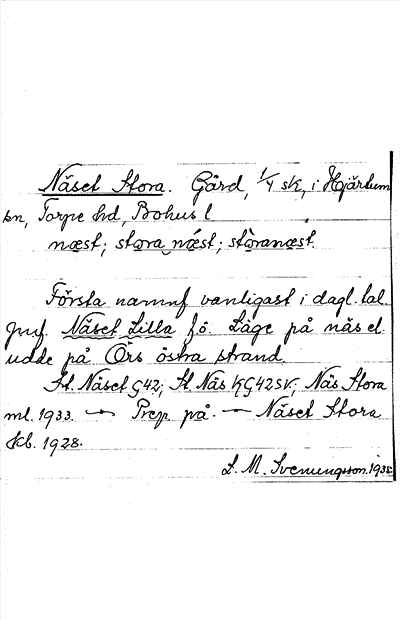 Näset Stora. Gård, 1/4 sk, i Hjärtum
sn, Torpe hd, Bohus l
næst; stora næst; storanæst.
Första namnf vanligast i dagl. tal.
Jmf. Näset Lilla fö. Läge på näs el.
udde på Örs östra strand.
St. Näset G42; St Näs KG42SV; Näs Stora
ml. 1933. — Prep på. — Näset Stora
kb. 1928.
S. M. Svenungsson. 1935.